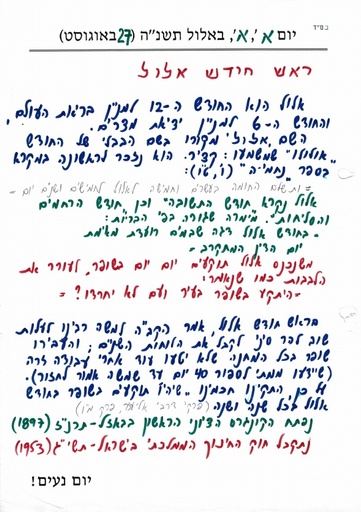 בס"ד
יום א', א', באלול תשנ"ה (27 באוגוסט)
ראש חודש אלול
אלול הוא החודש ה-12 למנין בריאת העולם,
והחודש ה-6 למנין יציאת מצרים.
השם "אלול" מקורו בשם הבבלי של החודש
"אולולו" שמשמעו: קציר. הוא נזכר לראשונה במקרא
בספר "נחמיה" (ו', ט"ו):
"ותשלם החומה בעשרים וחמשה לאלול לחמישים ושנים יום"
אלול נקרא "חודש התשובה" וכן "חודש הרחמים
והסליחות". מימרה שגורה בפי הבריות:
"בחודש אלול דגה שבמים רועדת מאימת
יום הדין המתקרב"
משנכנס אלול תוקעים יום יום בשופר לעורר את
הלבבות כמו שנאמר:
"היתקע בשופר בעיר ועם לא יחרדו?"
בראש חודש אלול אמר הקב"ה למשה רבינו לעלות
שוב להר סיני לקבל את הלוחות השניים; והעבירו
שופר בכל המחנה שלא יטעו עוד אחרי עבודה זרה
(שיידעו ממתי לספור 40 יום עד שמשה אמור לחזור).
על כן התקינו חכמינו "שיהיו תוקעים בשופר בחודש
אלול בכל שנה ושנה" (פרקי דרבי אליעזר, פרק מ"ו)
נפתח הקונגרס הציוני הראשון בבאזל - תרנ"ז (1897)
נתקבל חוק החינוך הממלכתי בישראל - תשי"ג (1953)
יום נעים!